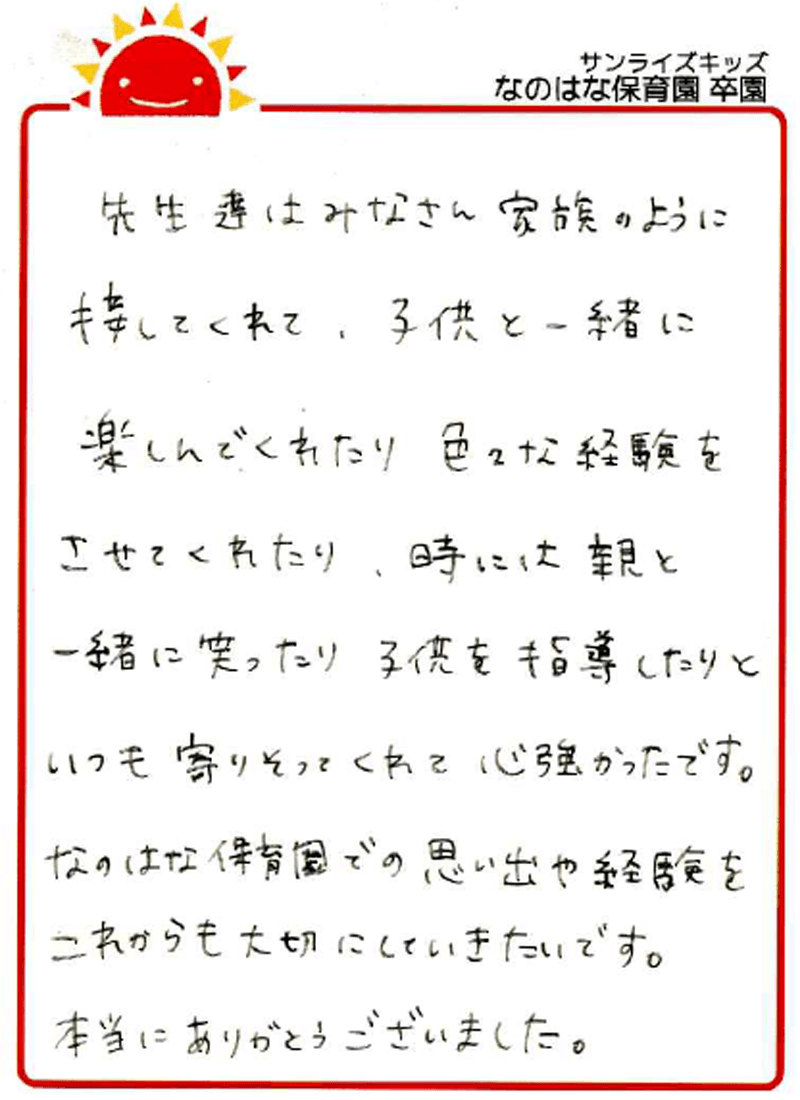 サンライズキッズ
なのはな保育園 卒園
先生達はみなさん 家族のように
接してくれて、子供と一緒に
楽しんでくれたり 色々な経験を
させてくれたり、時には 親と
一緒に笑ったり 子供を 指導したりと
いつも 寄りそってくれて 心強かったです。
なのはな保育園での思い出や経験を
これからも大切にしていきたいです。
本当にありがとうございました。